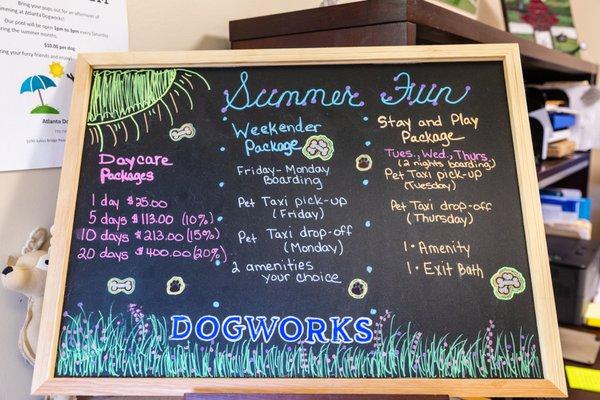 Bring your pups out for an afternoon
swimming at Atlanta Dogworks!
Our pool will be open 1pm to 3pm every Saturday
during the summer months!
$10.00 per dog
Bring your furry friends and enjoy!
Atlanta Do
Summer Fun
Daycare
Packages
1 day $25.00
5 days $113.00 (10%)
10 days $213.00 (15%)
20 days $400.00 (20%)
Weekender
Package
Friday-Monday
Boarding
Pet Taxi pick-up
(Friday)
Pet Taxi drop-off
(Monday)
2 amenities
your choice
Stay and Play
Package
Tues, Wed, Thurs.
(2 nights boarding)
Pet Taxi pick-up
(Tuesday)
Pet Taxi drop-off
(Thursday)
1 · Amenity
1 · Exit Bath
DOGWORKS